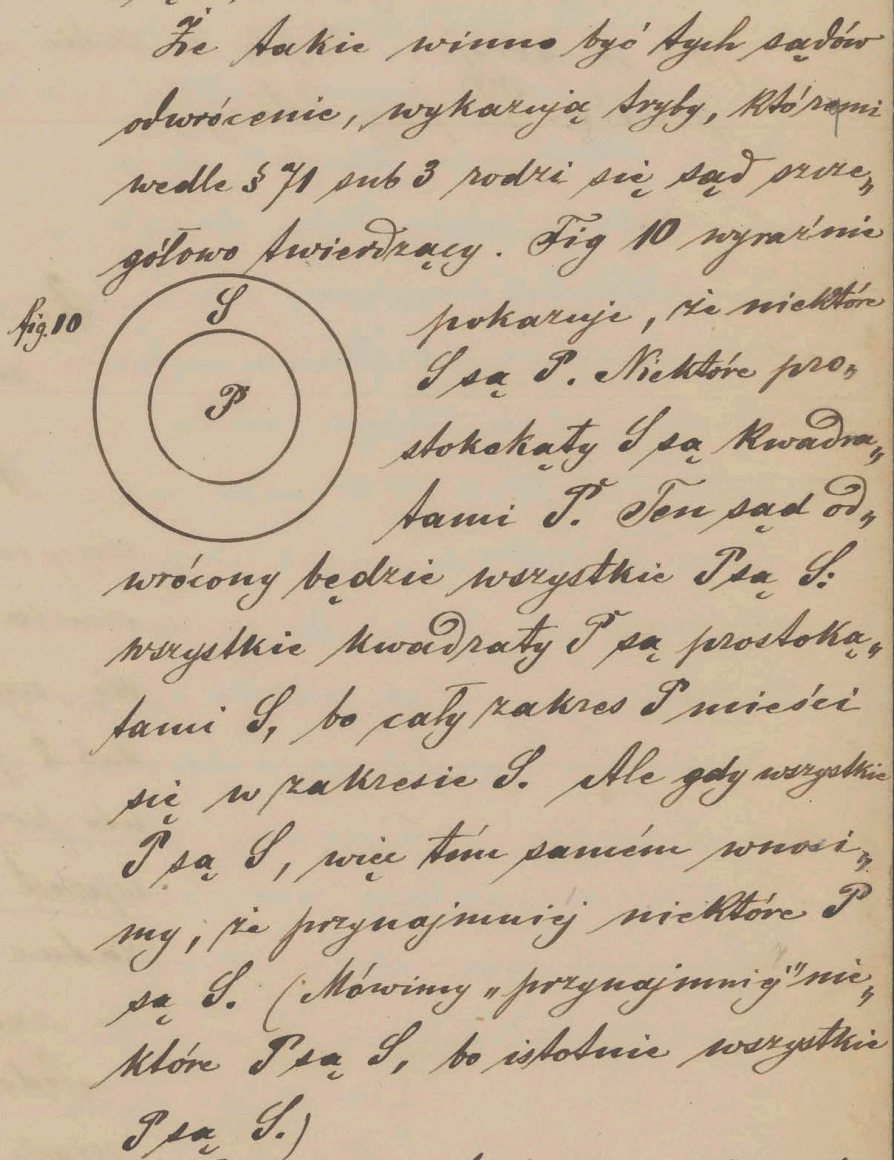 Że takie winno być tych sądów
odwrócenie, wykazują tryby, któremi
wedle § 71 sub 3 rodzi się sąd szcze„
gółowo twierdzący. Fig 10 wyraźnie
fig. 10
S
P
pokazuje, że niektóre
S są P. Niektóre pro„
stokekąty S są kwadra„
tami P. Ten sąd od„
wrócony będzie wszystkie P są S:
wszystkie kwadraty P są prostoką„
tami S, bo cały zakres P mieści
się w zakresie S. Ale gdy wszystkie
P są S, więc tém samém wnosi„
my, że przynajmniej niektóre P
są S. (Mówimy „przynajmniej" nie„
które P są S, bo istotnie wszystkie
P są S.)